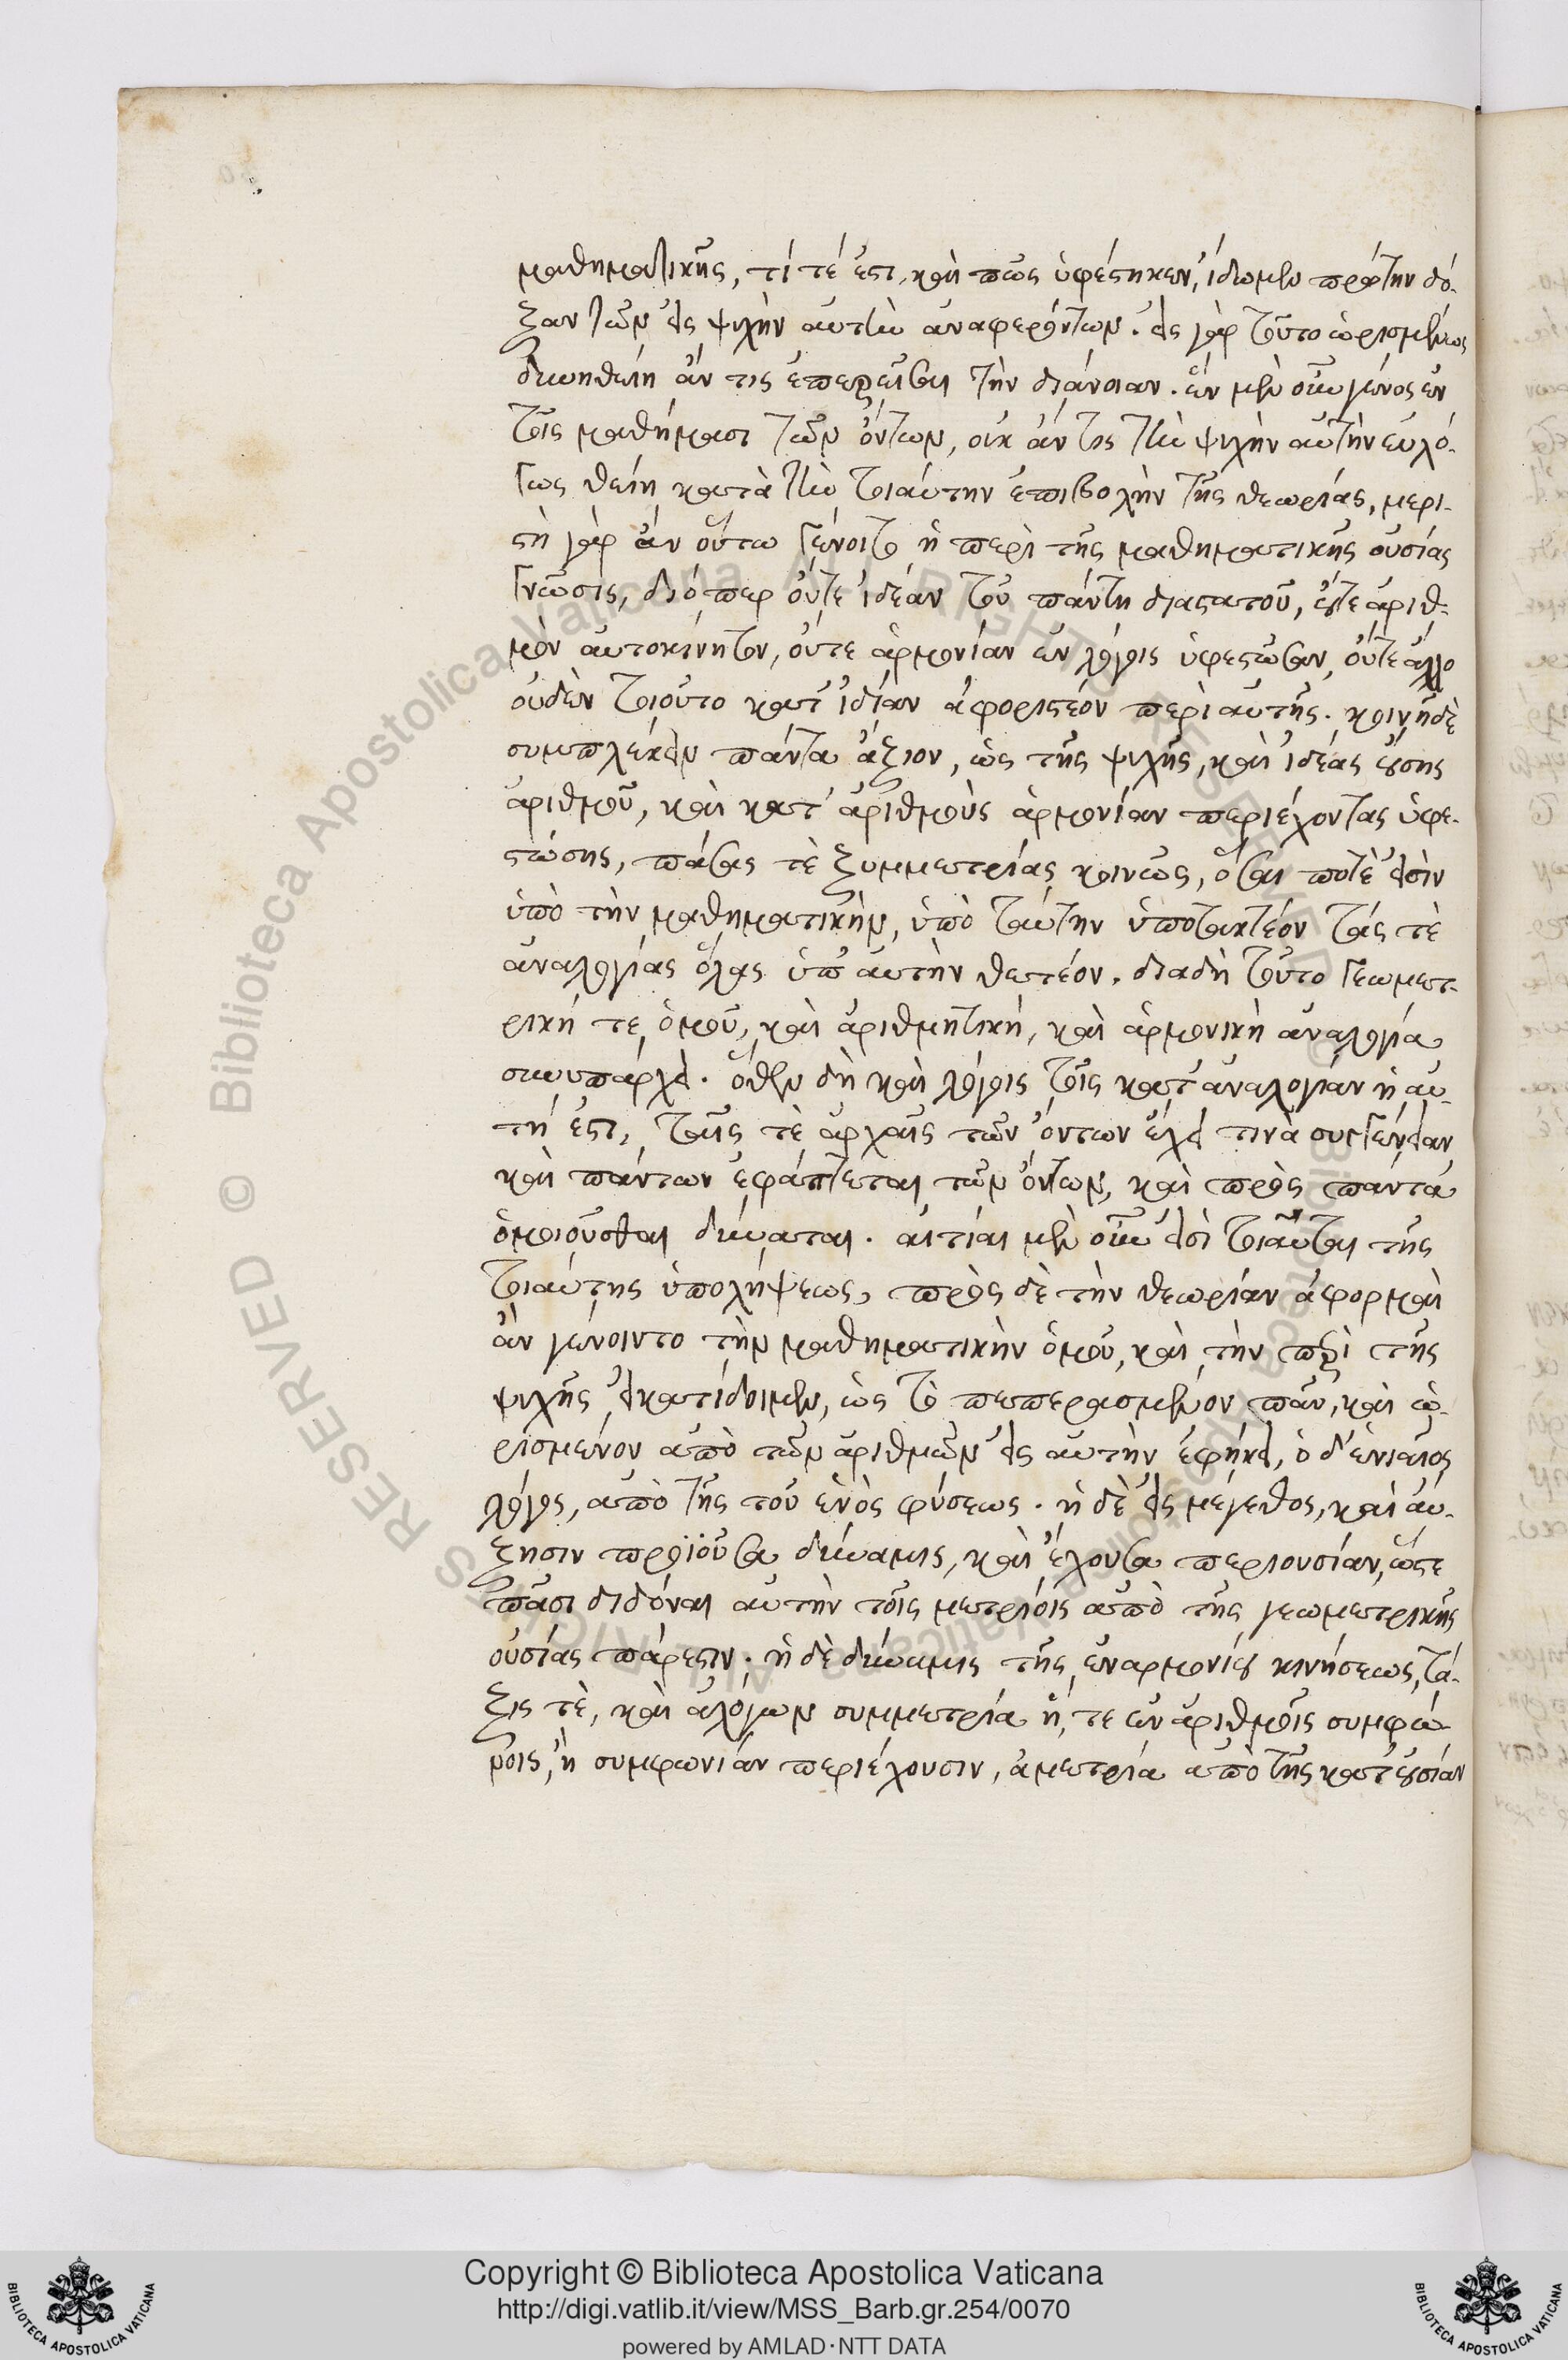 μαθηματικῆς, τί τέ ἐστι, καὶ πῶς ὑφέστηκεν, ἴδωμεν πρώτην δό-
ξαν τῶν εἰς ψυχὴν αὐτὴν ἀναφερόντων. εἰς γὰρ τοῦτο ὡρισμένως
δυνηθείη ἄν τις ἐπερεῖσαι τὴν διάνοιαν. ἓν μὲν οὖν γένος ἐν
τοῖς μαθήμασι τῶν ὄντων, οὐκ ἄν τις τὴν ψυχὴν αὐτὴν εὐλό-
γως θείη κατὰ τὴν τοιαύτην ἐπιβολὴν τῆς θεωρίας, μερι-
στὴ γὰρ ἂν οὕτω γένοιτο ἡ περὶ τῆς μαθηματικῆς οὐσίας
γνῶσις, διόπερ οὔτε ἰδέαν τοῦ πάντη διαστατοῦ, οὔτε ἀριθ-
μὸν αὐτοκίνητον, οὔτε ἁρμονίαν ἐν λόγοις ὑφεστῶσαν, οὔτε ἄλλο
οὐδὲν τοιοῦτο κατ' ἰδίαν ἀφοριστέον περὶ αὐτῆς. κοινῇ δὲ
συμπλέκειν πάντα ἄξιον, ὡς τῆς ψυχῆς, καὶ ἰδέας οὔσης
ἀριθμοῦ, καὶ κατ' ἀριθμοὺς ἁρμονίαν περιέχοντας ὑφε-
στώσης, πάσας τὲ ξυμμετρίας κοινῶς, ὅσαι ποτὲ εἰσὶν
ὑπὸ τὴν μαθηματικὴν, ὑπὸ ταύτην ὑποτακτέον τάς τὲ
ἀναλογίας ὅλας ὑπ' αὐτὴν θετέον. διαδὴ τοῦτο γεωμετ-
ρική τε ὁμοῦ, καὶ ἀριθμητική, καὶ ἁρμονικὴ ἀναλογία
συνυπάρχει. ὅθεν δὴ καὶ λόγοις τοῖς κατ' ἀναλογίαν ἡ αὐ-
τή ἐστι, ταῖς τὲ ἀρχαῖς τῶν ὄντων ἔχει τινὰ συγγένειαν
καὶ πάντων ἐφάπτεται τῶν ὄντων, καὶ πρὸς πάντα
ὁμοιοῦσθαι δύναται. αἰτίαι μὲν οὖν εἰσὶ τοιαῦται τῆς
τοιαύτης ὑπολήψεως, πρὸς δὲ τὴν θεωρίαν ἀφορμαὶ
ἂν γένοιντο τὴν μαθηματικὴν ὁμοῦ, καὶ τὴν περὶ τῆς
ψυχῆς εἰ κατίδοιμεν, ὡς τὸ πεπερασμένον πᾶν, καὶ ὡ-
ρισμένον ἀπὸ τῶν ἀριθμῶν εἰς αὐτὴν ἐφήκει, ὁ δ' ἑνιαῖος
λόγος, ἀπὸ τῆς τοῦ ἑνὸς φύσεως. ἡ δὲ εἰς μέγεθος, καὶ αὔ-
ξησιν προϊοῦσα δύναμις, καὶ ἔχουσα περιουσίαν, ὥστε
πᾶσι διδόναι αὐτὴν τοῖς μετρίοις ἀπὸ τῆς γεωμετρικῆς
οὐσίας πάρεστιν. ἡ δὲ δύναμις τῆς ἐναρμονίου κινήσεως, τά-
ξις τὲ, καὶ ἀλόγων συμμετρία ἥ, τε ἐν ἀριθμοῖς συμφώ-
νοις, ἢ συμφωνίαν περιέχουσιν, ἀμετρία ἀπὸ τῆς κατ' οὐσίαν
Copyright © Biblioteca Apostolica Vaticana
http://digi.vatlib.it/view/MSS_Barb.gr.254/0070
powered by AMLAD·NTT DATA